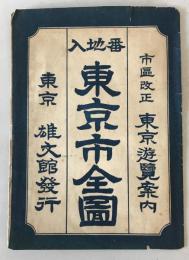 番地入
市區改正 東京游覽案内
東京市全圖
東京 雄文館發行